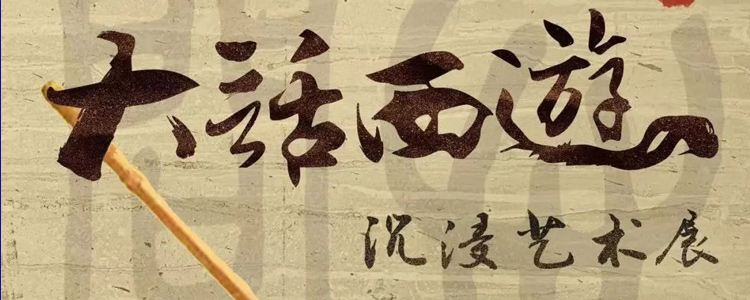 大話西遊
沉浸艺术展